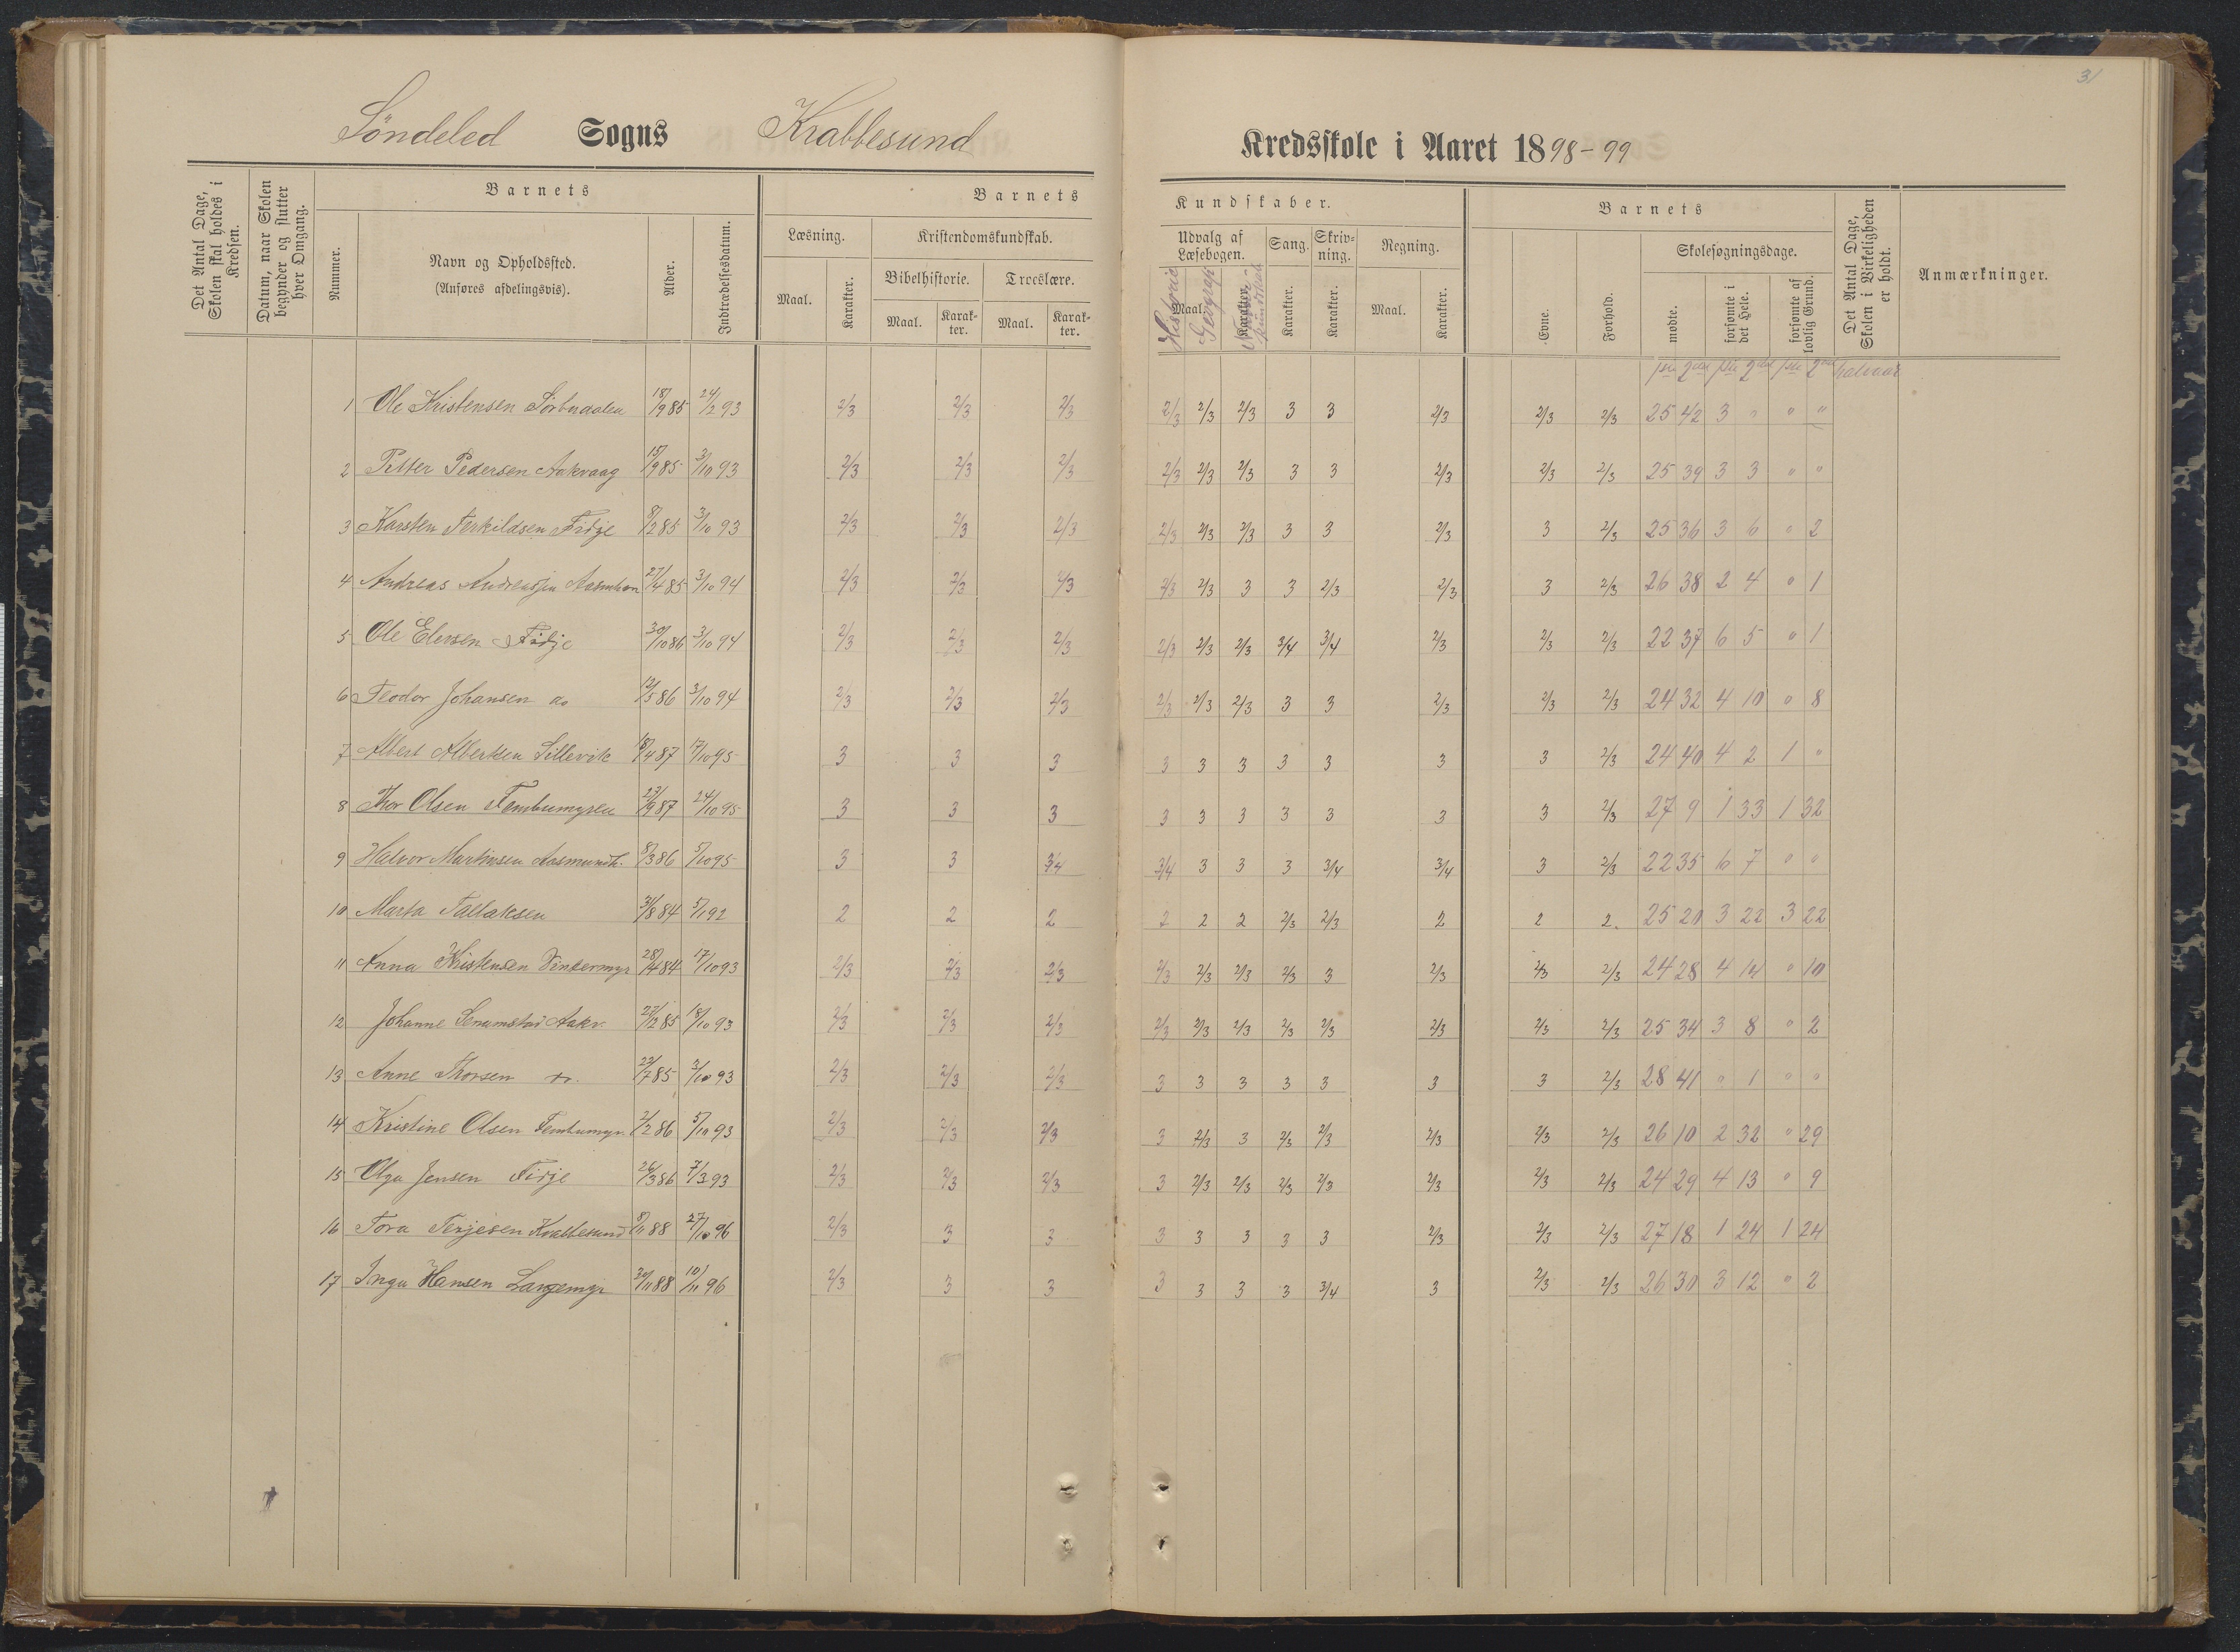 31
Söndeled Sogns Krabbesund Kredsskole i Aaret 1898-99
Det Antal Dage, Skolen skal holdes i Kredsen.
Datum, naar Skolen begynder og slutter hver Omgang.
Barnets
Nummer.
Navn og Opholdssted.
(Anføres afdelingsvis).
Alder.
Indtrædelsesdatum.
Barnets Kundskaber.
Læsning.
Maal.
Karakter.
Kristendomskundskab.
Bibelhistorie.
Maal.
Karakter.
Troeslære.
Maal.
Karakter.
Udvalg af Læsebogen.
Maal.
Karakter.
Historie
Geografi
Sang.
Karakter.
Skrivning.
Karakter.
Regning.
Maal.
Karakter.
Barnets
Evne.
Forhold.
Skolesøgningsdage.
mødte.
forsømte i det Hele.
forsømte af lovlig Grund.
Det Antal Dage, Skolen i Virkeligheden er holdt.
Anmærkninger.
1 Ole Kristensen 18/9 85 24/2 93 2/3 2/3 2/3 2/3 2/3 2/3 3 3 2/3 2/3 2/3 25 42 3 " " "
2 Petter Pedersen Aakvaag 15/9 85 3/10 93 2/3 2/3 2/3 2/3 2/3 2/3 3 3 2/3 2/3 2/3 25 39 3 3 " "
3 Karsten Terkildsen Fidje 8/2 85 3/10 93 2/3 2/3 2/3 2/3 2/3 2/3 3 3 2/3 3 2/3 25 36 3 6 " 2
4 Andreas 27/4 85 3/10 94 2/3 2/3 2/3 2/3 2/3 3 3 2/3 2/3 3 2/3 26 38 2 4 " 1
5 Ole Elevsen Fidje 30/10 86 3/10 94 2/3 2/3 2/3 2/3 2/3 2/3 3/4 3/4 2/3 2/3 2/3 22 37 6 5 " 1
6 Teodor Johansen do 12/5 86 3/10 94 2/3 2/3 2/3 2/3 2/3 2/3 3 3 2/3 2/3 2/3 24 32 4 10 " 8
7 Albert Albertsen Sillevik 18/4 87 17/10 95 3 3 3 3 3 3 3 3 3 3 2/3 24 40 4 2 1 "
8 Thor Olsen 23/9 87 24/10 95 3 3 3 3 3 3 3 3 3 3 2/3 27 9 1 33 1 32
9 Halvor Martinsen Aasmundh. 8/3 86 5/10 95 3 3 3/4 3/4 3 3 3 3/4 3/4 3 2/3 22 35 6 7 " "
10 Marta Tallaksen 31/8 84 5/1 92 2 2 2 2 2 2 2/3 2/3 2 2 2. 25 20 3 22 3 22
11 Anna Kristensen 28/4 84 17/10 93 2/3 2/3 2/3 2/3 2/3 2/3 2/3 3 2/3 2/3 2/3 24 28 4 14 " 10
12 Johanne Aakv. 27/2 85 18/10 93 2/3 2/3 2/3 2/3 2/3 2/3 2/3 2/3 2/3 2/3 2/3 25 34 3 8 " 2
13 Anne Thorsen do. 23/7 85 3/10 93 2/3 2/3 2/3 3 3 3 3 3 3 3 2/3 28 41 " 1 " "
14 Kristine Olsen 2/2 86 5/10 93 2/3 2/3 2/3 3 2/3 3 2/3 2/3 2/3 2/3 2/3 26 10 2 32 " 29
15 Olga Jensen Fidje 26/3 86 7/3 93 2/3 2/3 2/3 3 2/3 2/3 2/3 2/3 2/3 2/3 2/3 24 29 4 13 " 9
16 Tora Terjesen Krabbesund 8/11 88 27/10 96 2/3 3 3 3 3 3 3 3 2/3 2/3 2/3 27 18 1 24 1 24
17 Inga Hansen Langemyr 30/11 88 10/11 96 2/3 3 3 3 3 3 3 3/4 3 2/3 2/3 26 30 3 12 " 2